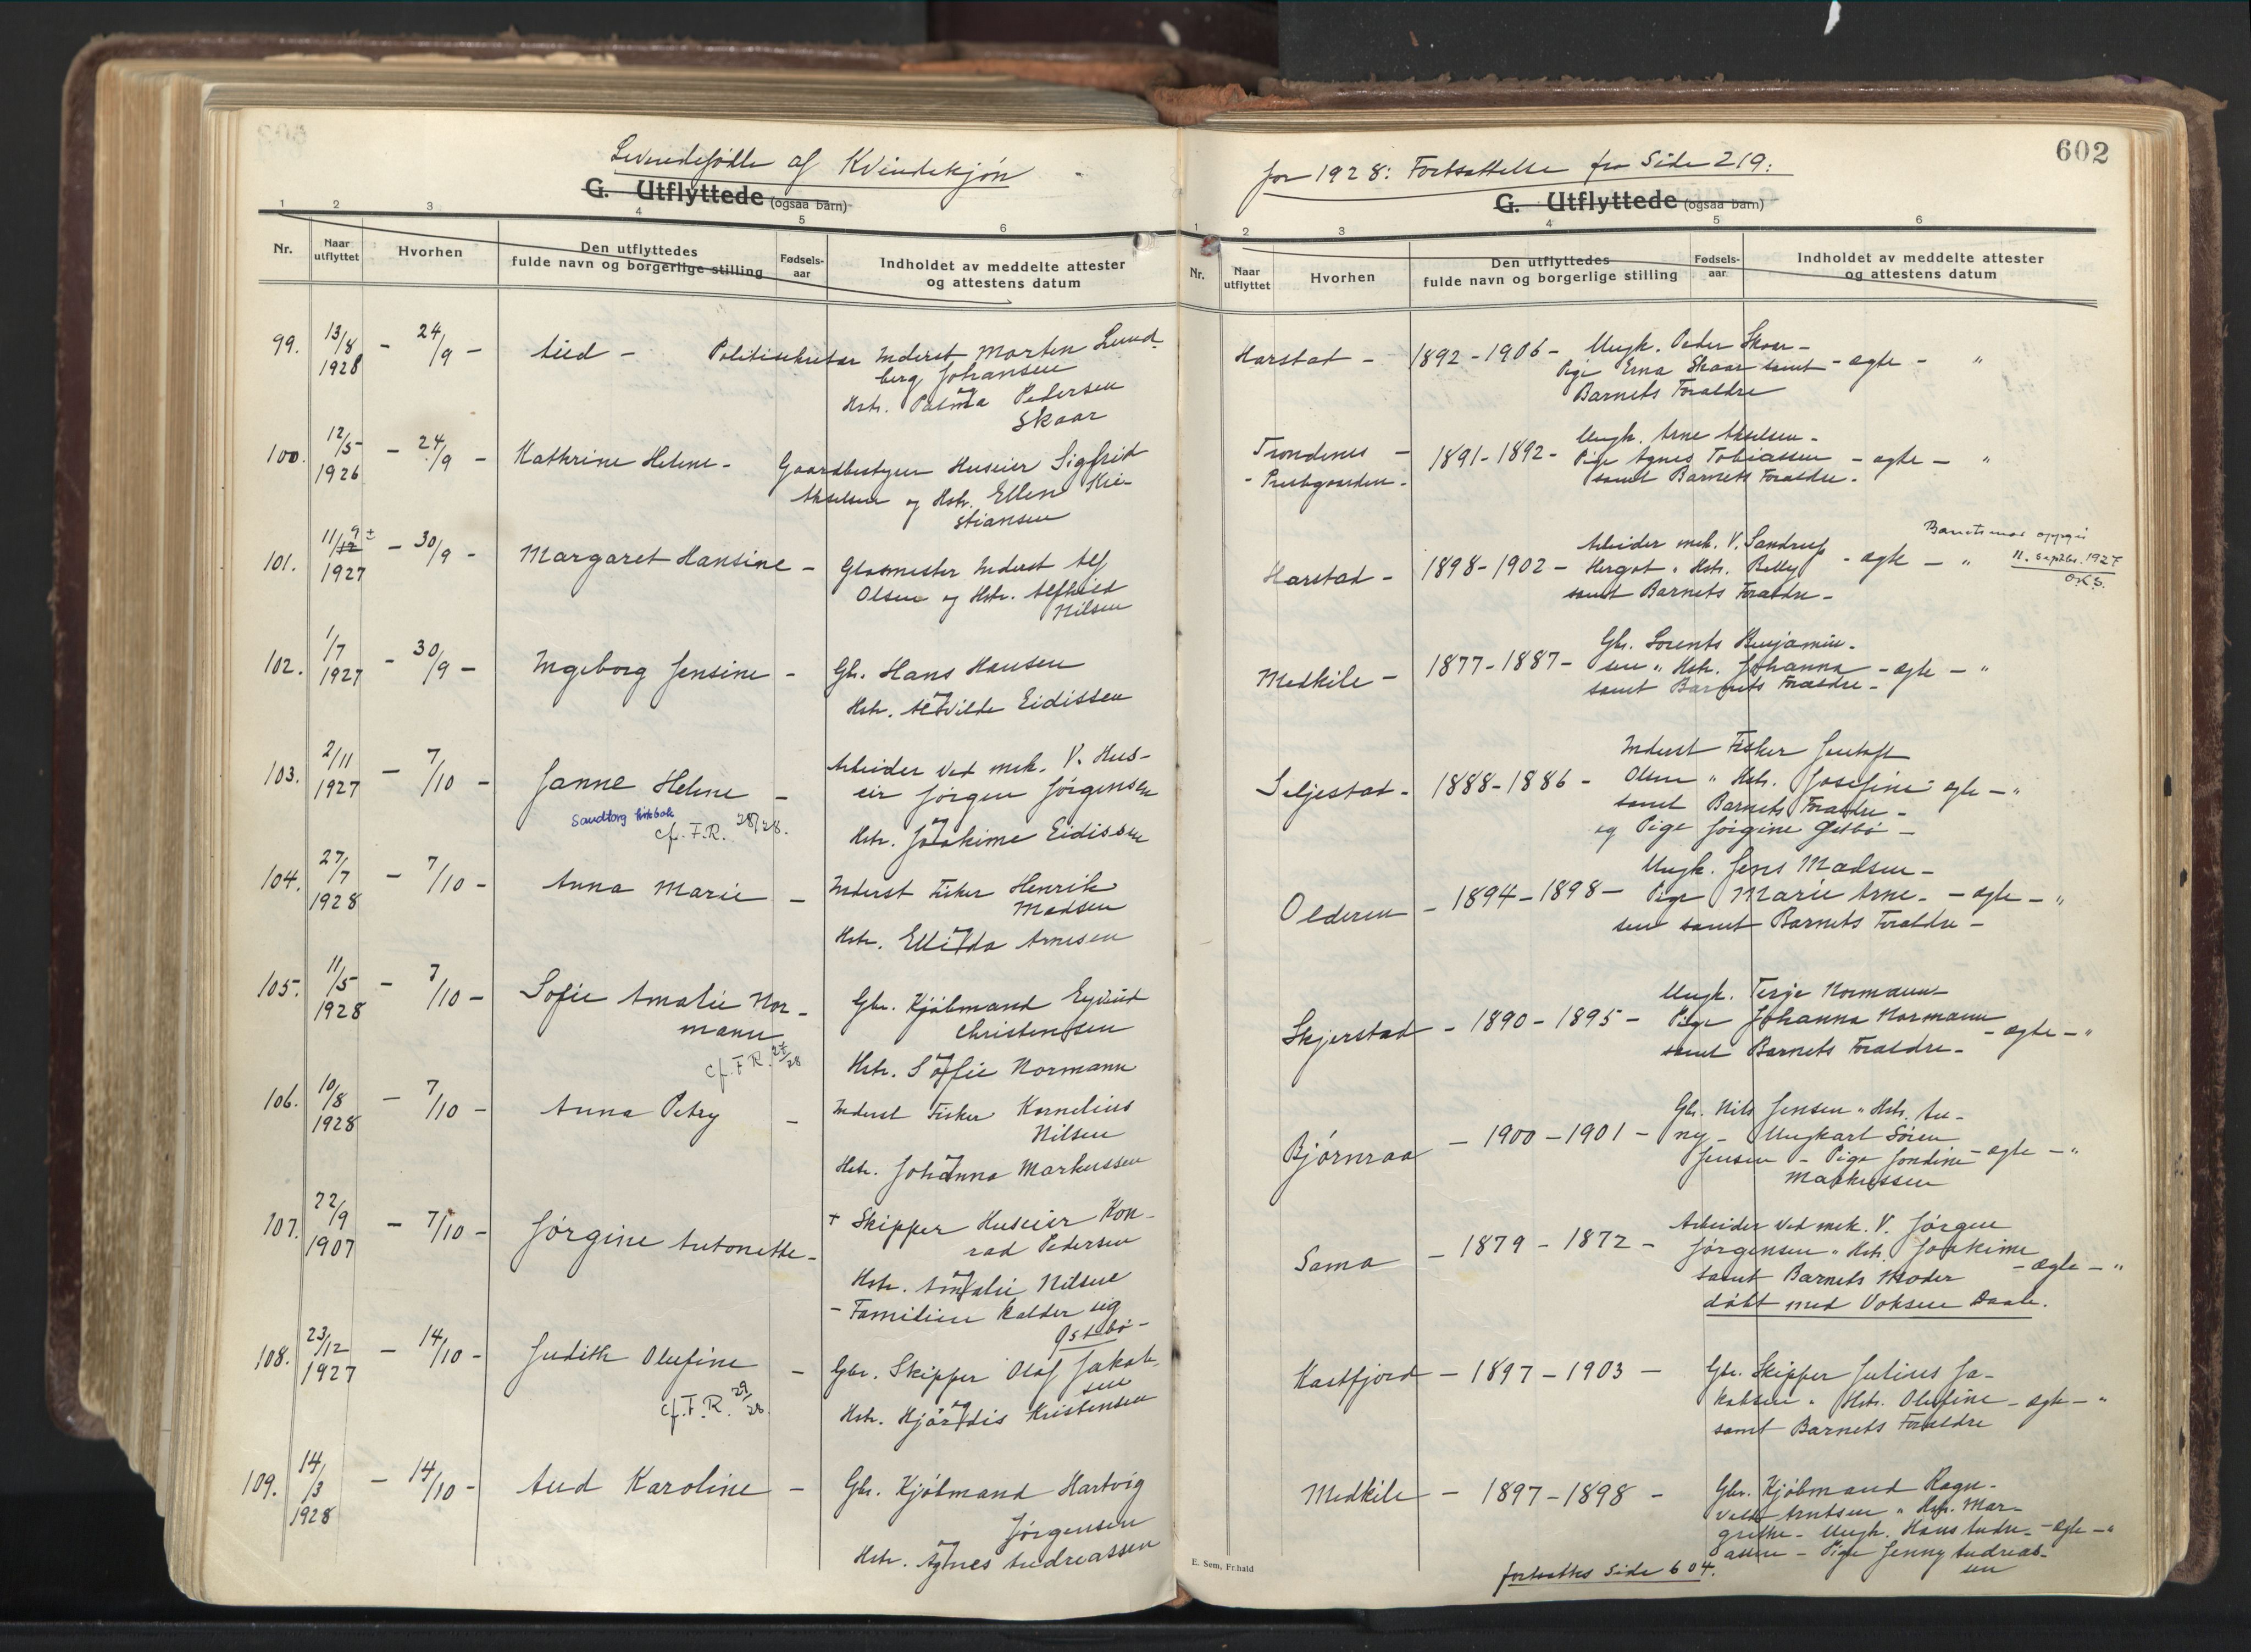 Levendefødte af Kvindekjøn
G. Utflyttede (ogsaa barn)
1 2 3 4 5 6
Nr.
Naar utflyttet
Hvorhen
Den utflyttedes
fulde navn og borgerlige stilling
Fødsels-
aar
Indholdet av meddelte attester
og attestens datum
99. 13/8 1928 - 24/9 - Aud - Politisekretær Inderst Morten Lund-
berg Johansen
og
Hstr. Palma Pedersen
Skaar
100. 12/5 1926 - 24/9 - Kathrine Helene - Gaardbestyrer Huseier Sigfrid
Akselsen og Hstr. Ellen Kri-
stiansen
101. 11/12 9 1927 - 30/9 - Margaret Hansine - Glasmester Inderst Alf
Olsen og Hstr. Alfhild
Nilsen
102. 1/7 1927 - 30/9 - Ingeborg Jensine - Gbr. Hans Hansen
og
Hstr. Alvilde Eidissen
103. 2/11 1927 - 7/10 - Janne Helene - Arbeider ved mek. V. Hus-
eir Jørgen Jørgensen
og
Hstr. Joakime Eidissen
Sandtorg kirkbok
cf. F.R. 28/28.
104. 27/7 1928 - 7/10 - Anna Marie - Inderst Fisker Henrik
Madsen
og
Hstr. Ellida Arnesen
105. 11/5 1928 - 7/10 - Sofie Amalie Nor-
mann
Gbr. Kjøbmand Eyvind
Christensen
og
Hstr. Sofie Normann
cf. F.R. 28
106. 10/8 1928 - 7/10 - Anna Petry - Inderst Fisker Kornelius
Nilsen
og
Hstr. Johanna Markussen
107. 22/9 1907 - 7/10 - Jørgine Antonette - + Skipper Huseier Kon-
rad Pedersen
og
Hstr. Amalie Nilsen
- Familien kalder sig
Østbø -
108. 23/12 1927 - 14/10 - Judith Olufine - Gbr. Skipper Olaf Jakob-
sen
og
Hstr. Hjørdis Kristensen
cf. F.R. 29/28
109. 14/3 1928 - 14/10 - Aud Karoline - Gbr. Kjøbmand Hartvig
Jørgensen
og
Hstr. Agnes Andreassen
602
for 1928: Fortsættelse fra Side 219:
G. Utflyttede (ogsaa barn)
1 2 3 4 5 6
Nr.
Naar
utflyttet
Hvorhen
Den utflyttedes
fulde navn og borgerlige stilling
Fødsels-
aar
Indholdet av meddelte attester
og attestens datum
Harstad - 1892 - 1906 - Ungk. Peder Skaar -
Pige Erna Skaar samt - ægte - "
Barnets Forældre
Trondenes - 1891 - 1892 - Ungk. Arne Akselsen -
- Prestgaarden - Pige Agnes Tobiassen - ægte - "
samt Barnets Forældre -
Harstad - 1898 - 1902 - Arbeider mek. V. Sandrup
Hergot " Hstr. Betty - ægte - "
samt Barnets Forældre -
Barnets mor opgir
11. septbr. 1927
O.K.S.
Medkile - 1877 - 1887 - Gbr. Lorents Benjamin-
sen " Hstr. Johanna - ægte - "
samt Barnets Forældre -
Seljestad - 1888 - 1886 - Inderst Fisker
Olsen " Hstr. Josefine - ægte - "
samt Barnets Forældre -
og Pige Jørgine Østbø -
Olderen - 1894 - 1898 - Ungk. Jens Madsen -
Pige Marie Arne- - ægte - "
sen samt Barnets Forældre -
Skjerstad - 1890 - 1895 - Ungk. Terje Normann -
Pige Johanna Normann - ægte - "
samt Barnets Forældre -
Bjørnraa - 1900 - 1901 - Gbr. Nils Jensen " Hstr. An-
ny - Ungkarl Søren
Jensen - Pige Jondine - ægte - "
Markussen
Sama - 1879 - 1872 - Arbeider ved mek. V. Jørgen
Jørgensen " Hstr. Joakime - ægte - "
samt Barnets Moder
døbt med Voksen Daab.
Kastfjord - 1897 - 1903 - Gbr. Skipper Julius Ja-
kobsen " Hstr. Olufine - ægte - "
samt Barnets Forældre
Medkile - 1897 - 1898 - Gbr. Kjøbmand Ragn-
vald Arntsen " Hstr. Mar-
grethe - Ungk. Hans Andre- - ægte - "
assen - Pige Jenny Andreas-
sen
fortsættes Side 604.
E. Sem, Fr.hald